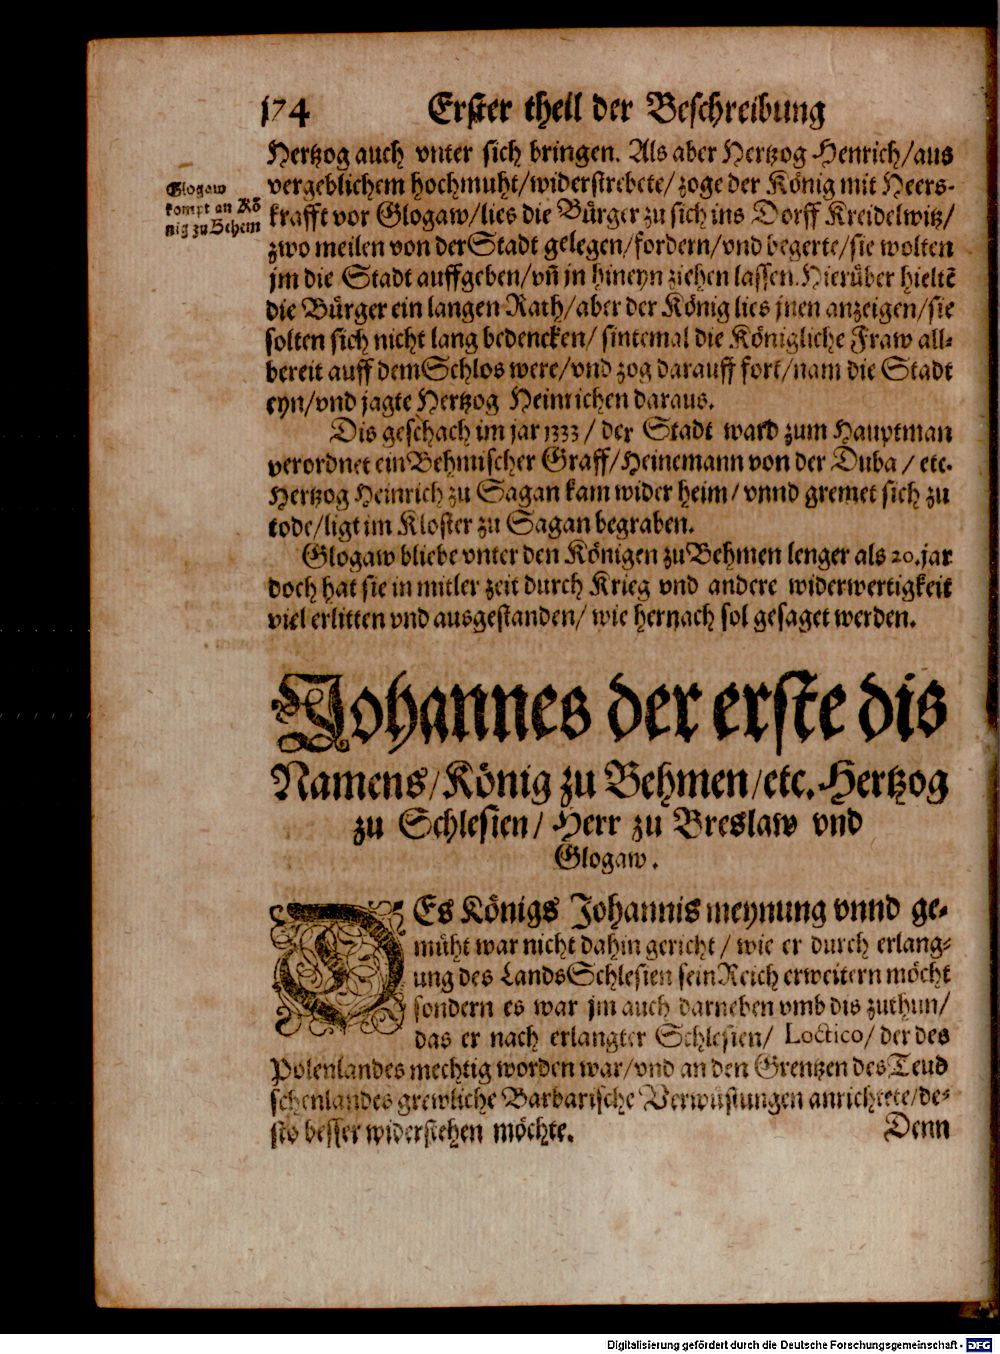 174 Erster theil der Beschreibung
Hertzog auch vnter sich bringen. Als aber Hertzog Henrich/aus
vergeblichem hochmuht/widerstrebete/zoge der König mit Heers-
krafft vor Glogaw/lies die Bürger zu sich ins Dorff Kreidelwitz/
zwo meilen von der Stadt gelegen/fordern/vnd begerte/sie wolten
jm die Stadt auffgeben/vñ jn hineyn ziehen lassen. Hierüber hieltẽ
die Bürger ein langen Rath/aber der König lies jnen anzeigen/sie
solten sich nicht lang bedencken/ sintemal die Königliche Fraw all-
bereit auff dem Schlos were/vnd zog darauff fort/nam die Stadt
eyn/vnd jagte Hertzog Heinrichen daraus.
Glogaw
kompt an Kö
nig zu Behem
Dis geschach im jar 1333/ der Stadt ward zum Hauptman
verordnet ein Behmischer Graff/Heinemann von der Duba/ etc.
Hertzog Heinrich zu Sagan kam wider heim/ vnnd gremet sich zu
tode/ligt im Kloster zu Sagan begraben.
Glogaw bliebe vnter den Königen zu Behmen lenger als 20.jar
doch hat sie in mitler zeit durch Krieg vnd andere widerwertigkeit
viel erlitten vnd ausgestanden/ wie hernach sol gesaget werden.
Johannes der erste dis
Namens/König zu Behmen/etc. Hertzog
zu Schlesien/ Herr zu Breslaw vnd
Glogaw.
DEs Königs Johannis meynung vnnd ge-
müht war nicht dahin gericht/ wie er durch erlang-
ung des Lands Schlesien sein Reich erweitern möcht
sondern es war jm auch darneben vmb dis zuthun/
das er nach erlangter Schlesien/ Loctico/ der des
Polenlandes mechtig worden war/vnd an den Grentzen des Teud
schenlandes grewliche Barbarische Verwüstungen anrichtete/de-
sto besser widerstehen möchte.
Denn
Digitalisierung gefördert durch die Deutsche Forschungsgemeinschaft - DFG